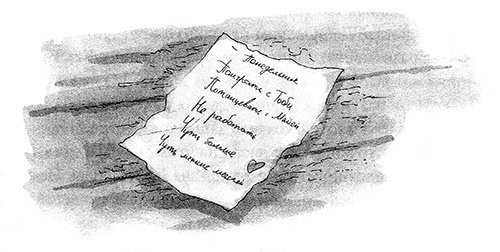 – Понедельник
Поиграть с Тоби
Потанцевать с Мыси
Не работать
Чуть больше
Чуть меньше мыслей